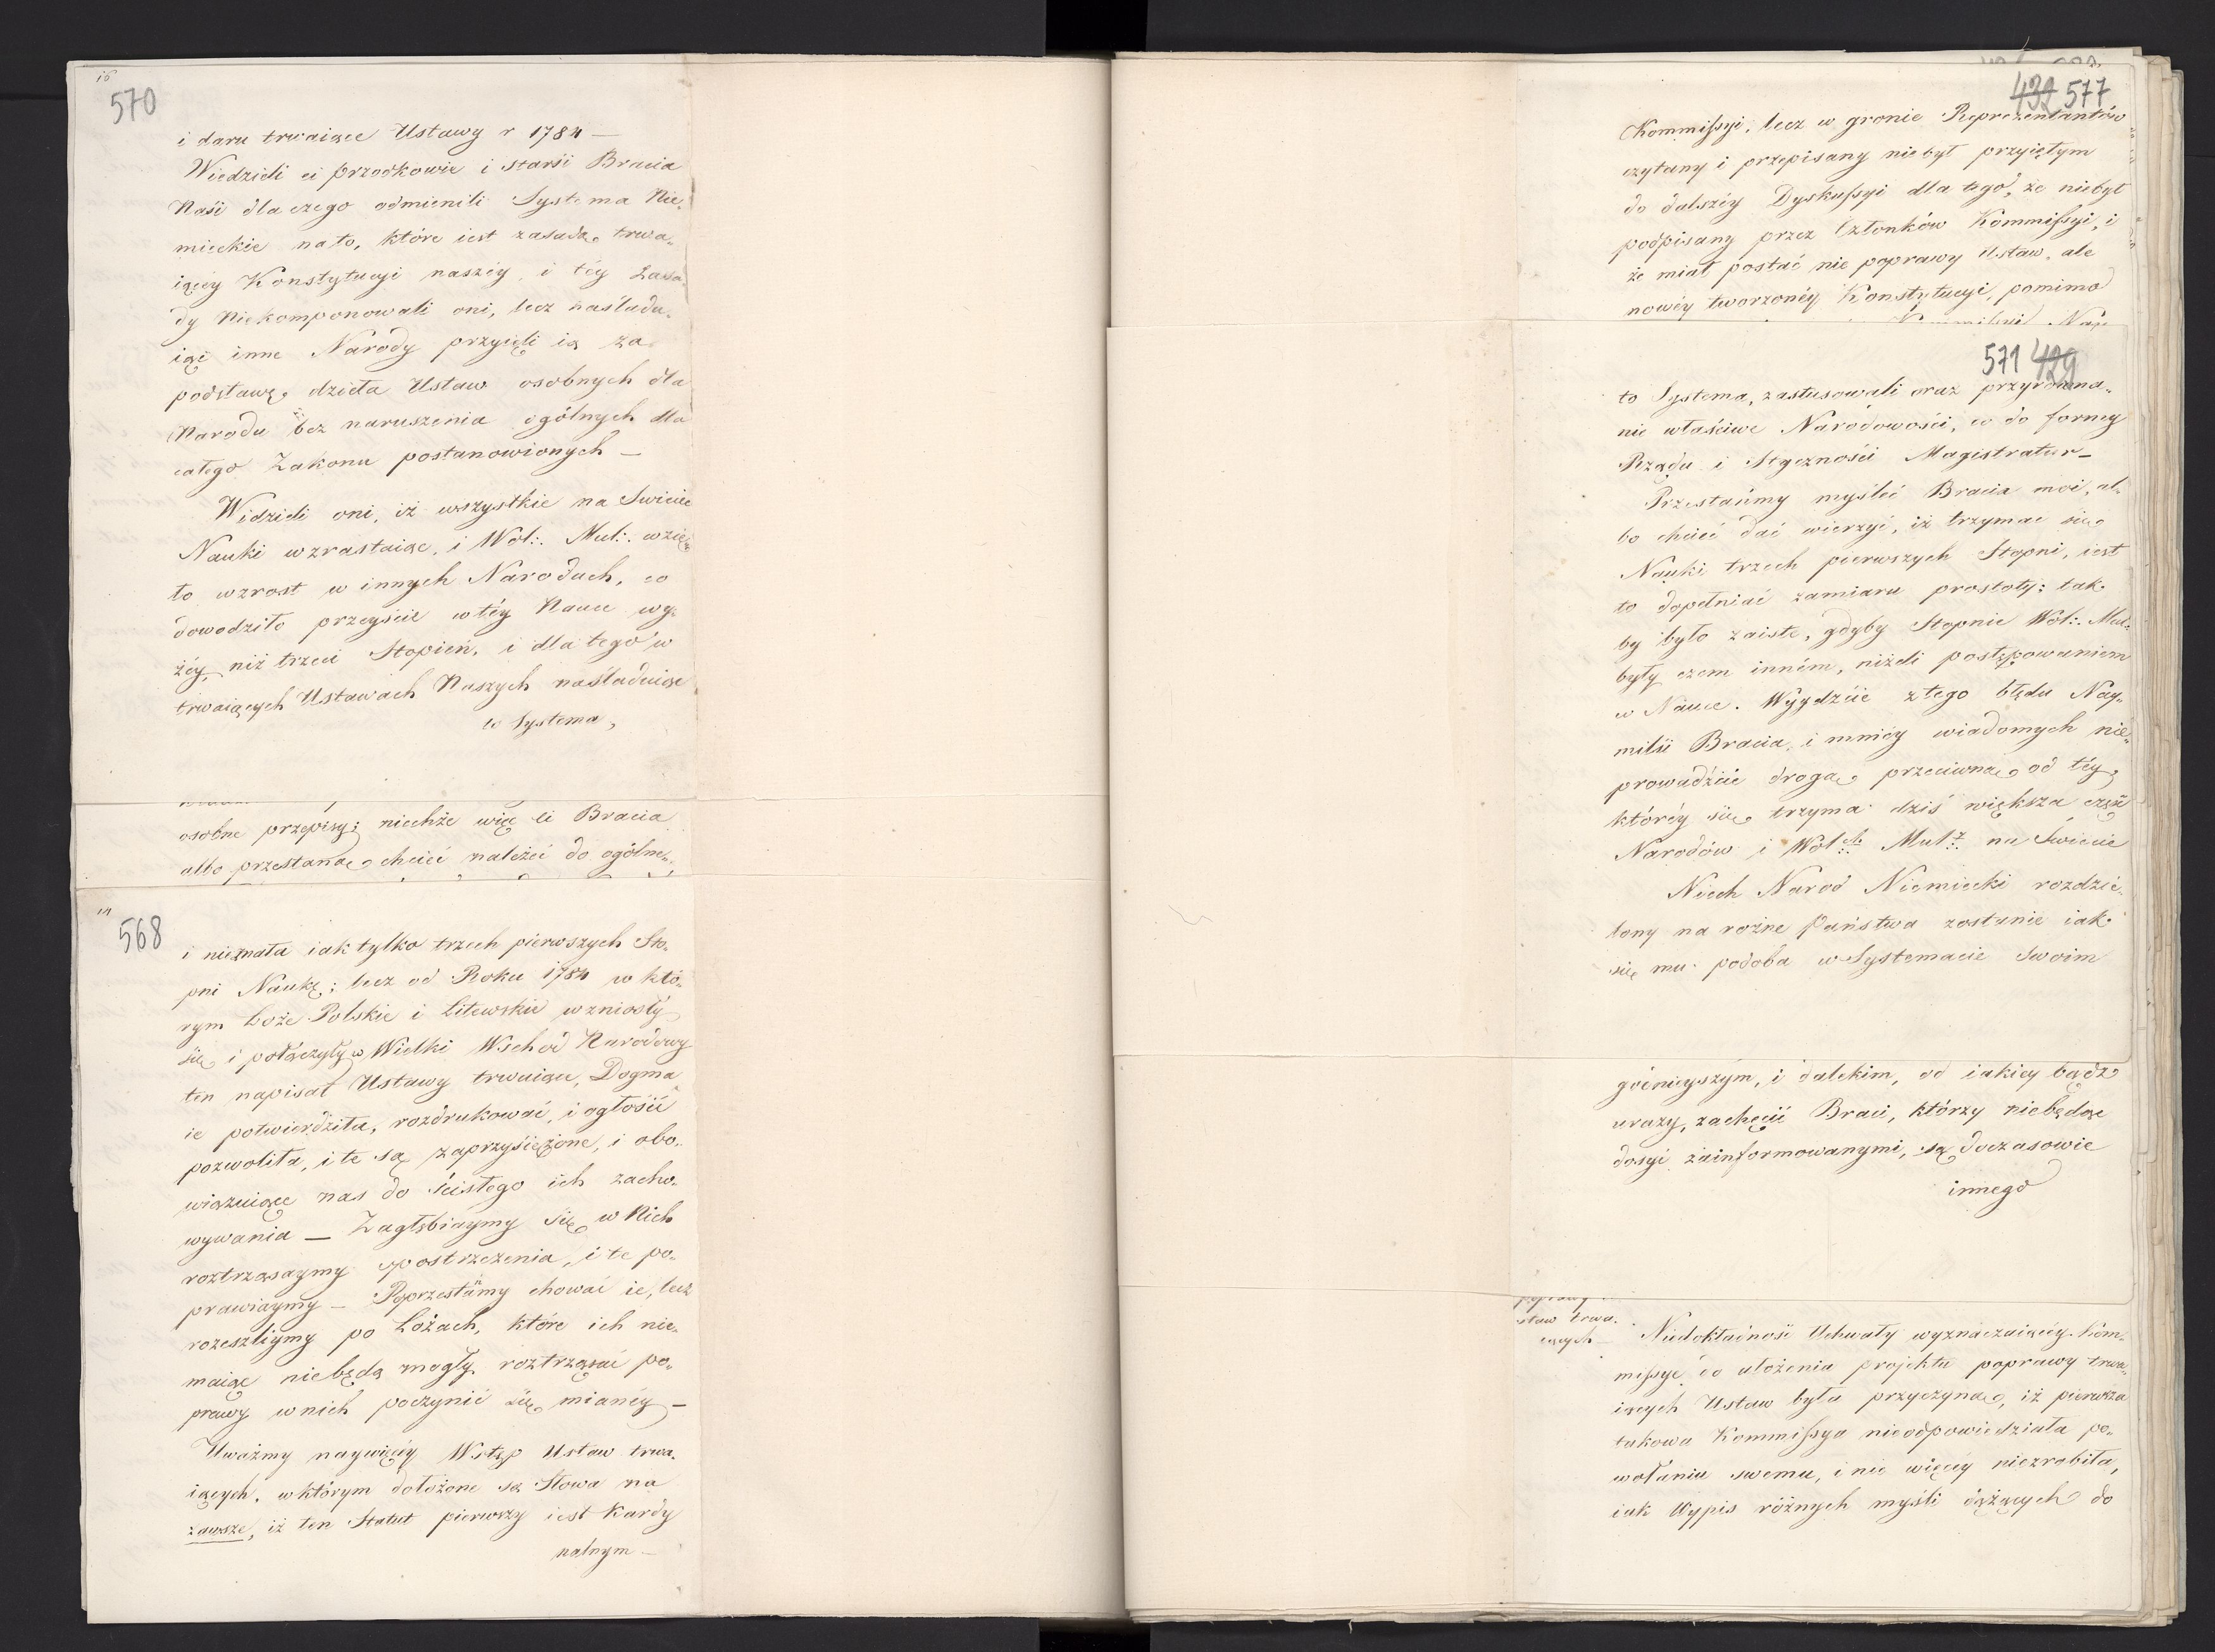 16
570
i daru trwaiące Ustawy r 1784 —
Wiedzieli ci przodkowie i starśi Bracia
Naśi dla czego odmienili Systema Nie„
mieckie na to, które iest zasadą trwa„
iącéy Konstytucyi naszéy, i téy zasa„
dy Niekomponowali oni, lecz naśladu„
iąc inne Narody przyięli ią za
podstawę dzieła Ustaw osobnych dla
Narodu bez naruszenia ogólnych dla
całego Zakonu postanowionych —
Widzieli oni, iż wszystkie na Swiecie
Nauki wzrastaiąc, i Wol:. Mul:. wzię„
to wzrost w innych Narodach, co
dowodziło przeyście w téy Nauce wy„
żéy niż trzeci Stopień, i dla tego w
trwaiących Ustawach Naszych naśladuiąc
to Systema,
osobne przepisy; niechże więc ci Bracia
albo przestaną chcieć należeć do ogólne„
14
568
i nieznała iak tylko trzech pierwszych Sto„
pni Naukę; lecz od Roku 1784 w któ„
rym Loże Polskie i Litewskie wzniosły
się i połączyły w Wielki Wschód Narodowy
ten napisał Ustawy trwaiące, Dogma
ie potwierdziła, rozdrukować, i ogłosić
pozwoliła, i te są zaprzysiężone, i obo„
wiązuiące nas do ścisłego ich zacho„
wywania — Zagłębiaymy się w Nich
roztrząsaymy spostrzeżenia, i te po„
prawiaymy — Poprzestańmy chować ie, lecz
rozeszliymy po Lożach, które ich nie„
maiąc niebędą mogły roztrząsać po„
prawy w nich poczynić się mianéy —
Uważmy naywięcéy Wstęp Ustaw trwa„
iących, w którym dołożone są Słowa na
zawsze, iż ten Statut pierwszy iest Kardy
nalnym —
432 577
Kommissyi, lecz w gronie Reprezentantów
czytany i przepisany niebył przyiętym
do dalszéy Dyskussyi dla tego, że niebył
podpisany przez Członków Kommissyi, i
że miał postać nie poprawy Ustaw, ale
nowéy tworzonéy Konstytucyi, pomimo
571 429
to Systema, zastusowali oraz przyrówna„
nie właściwe Narodowości, co do formy
Rządu i Styczności Magistratur —
Przestańmy myśleć Bracia moi, al„
bo chcieć dać wierzyć, iż trzymać się
Nauki trzech pierwszych Stopni, iest
to dopełniać zamiaru prostoty: tak
by było zaiste, gdyby Stopnie Wol:. Mul:.
były czem inném, niżeli postępowaniem
w Nauce. Wyydźcie z tego błędu Nay„
milsi Bracia, i mniéy wiadomych nie„
prowadźcie drogą przeciwną od téy,
któréy się trzyma dziś większa część
Narodów i Wolch Mulz na Świecie
Niech Naród Niemiecki rozdzie„
lony na rożne Państwa zostanie iak
się mu podoba w Systemacie Swoim
godnieyszym, i dalekim, od iakiey bądź
urazy, zachęcić Braci, którzy niebędąc
dosyć zainformowanymi, są doczasowie
innego
staw trwa„
iących —
Niedokładność Uchwały wyznaczaiącéy Kom„
missyę do ułożenia projektu poprawy trwa
iących Ustaw była przyczyną, iż pierwsza
takowa Kommissya nieodpowiedziała po„
wołaniu swemu, i nic więcéy niezrobiła,
iak Wypis różnych myśli dążących do